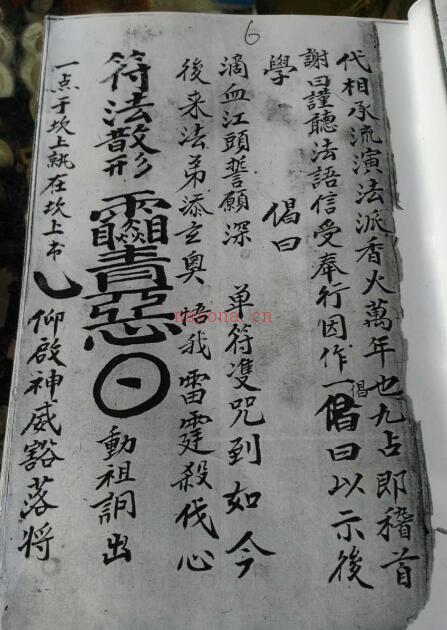 6
代相承流演法派香火萬年也九占即稽首
謝曰謹聽法語信受奉行因作一偈曰以示後
偈
學　偈曰
滴血江頭誓願深　單符雙咒到如今
後来法弟添玄奥　悟我雷霆殺伐心
符法散形　動祖訶出
一点于坎上執在坎上书　仰啟神威豁落将